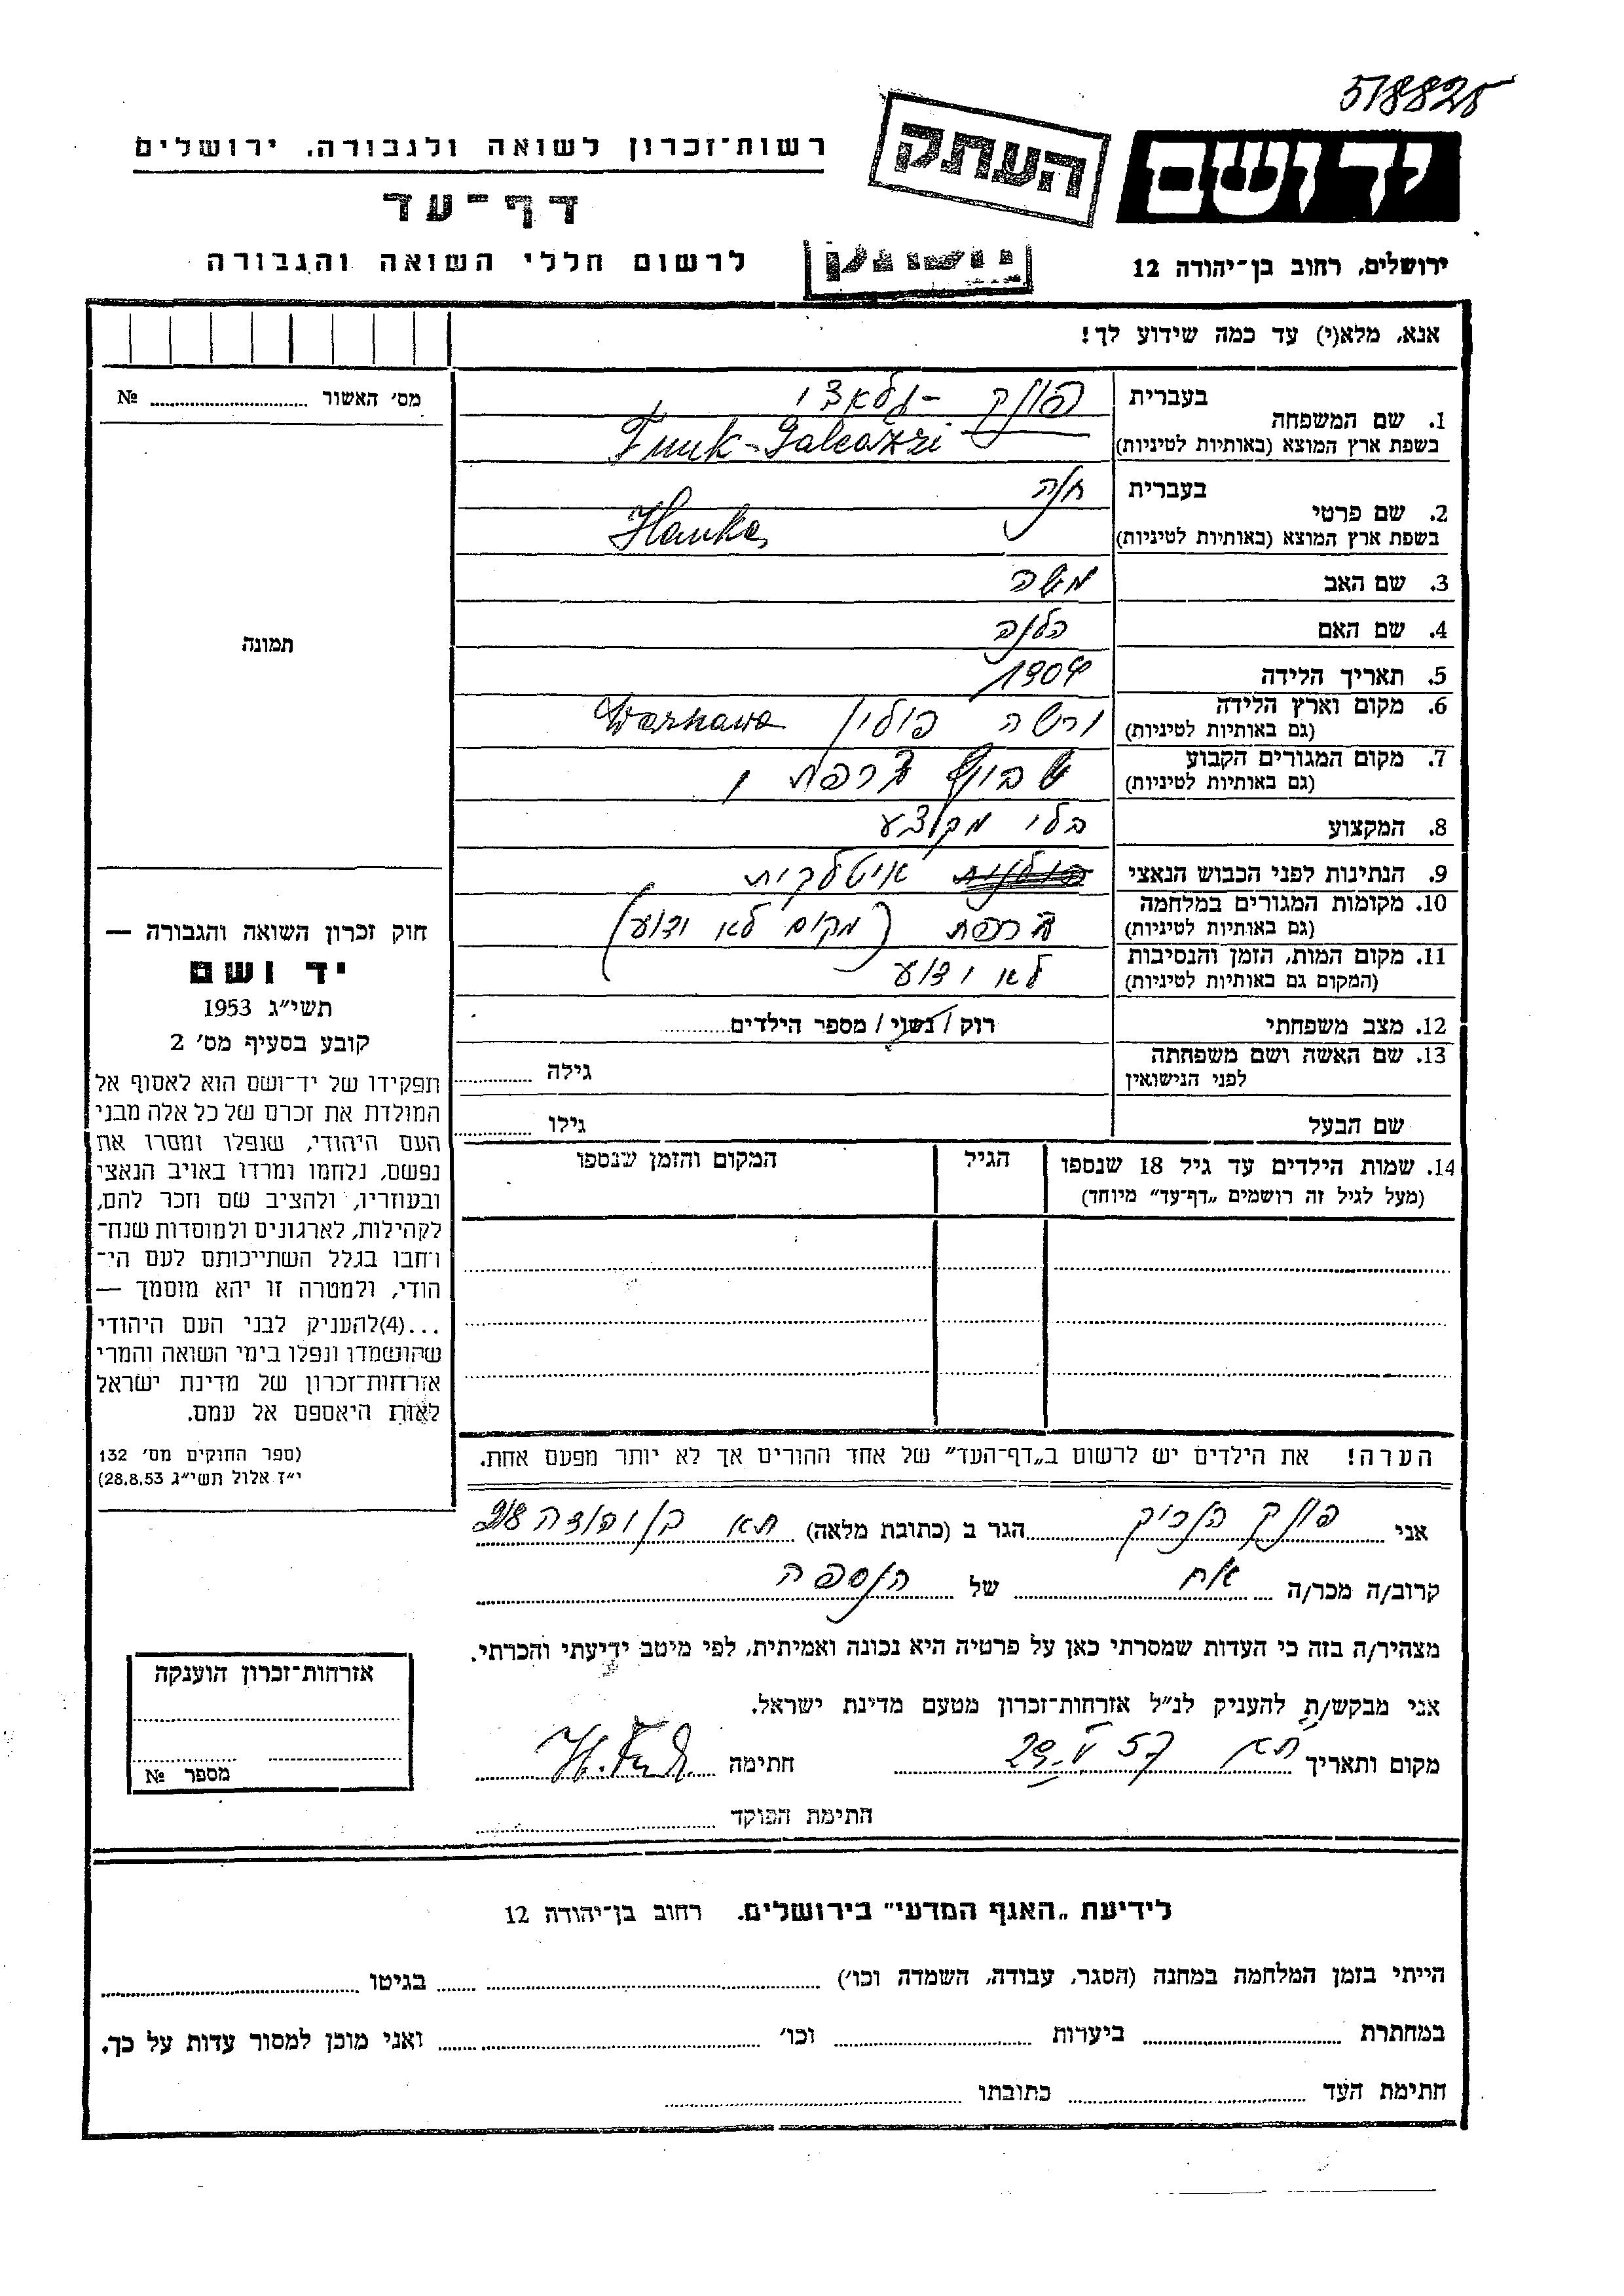 518825
יד ושם
העתק
רשות־זכרון לשואה ולגבורה. ירושלים
דף־עד
ירושלים, רחוב בן־יהודה 12
לרשום חללי השואה והגבורה
אנא, מלא(י) עד כמה שידוע לך!
מס׳ האשור ........ №
תמונה
1. שם המשפחה בעברית פונק - גלאצי
בשפת ארץ המוצא (באותיות לטיניות) Funk-Galeazzi
2. שם פרטי בעברית חנה
בשפת ארץ המוצא (באותיות לטיניות) Hanka
3. שם האב משה
4. שם האם הלנה
5. תאריך הלידה 1904
6. מקום וארץ הלידה ורשה פולין Warszawa
(גם באותיות לטיניות)
7. מקום המגורים הקבוע צרפת
(גם באותיות לטיניות)
8. המקצוע בלי מקצוע
9. הנתינות לפני הכבוש הנאצי פולנית איטלקית
10. מקומות המגורים במלחמה צרפת (מקום לא ידוע)
(גם באותיות לטיניות)
11. מקום המות, הזמן והנסיבות לא ידוע
(המקום גם באותיות לטיניות)
12. מצב משפחתי רוק / נשוי / מספר הילדים........
13. שם האשה ושם משפחתה גילה ........
לפני הנישואין
שם הבעל גילו ........
14. שמות הילדים עד גיל 18 שנספו הגיל המקום והזמן שנספו
(מעל לגיל זה רושמים „דף־עד״ מיוחד)
הערה! את הילדים יש לרשום ב„דף־העד״ של אחד ההורים אך לא יותר מפעם אחת.
חוק זכרון השואה והגבורה —
יד ושם
תשי״ג 1953
קובע בסעיף מס׳ 2
תפקידו של יד־ושם הוא לאסוף אל
המולדת את זכרם של כל אלה מבני
העם היהודי, שנפלו ומסרו את
נפשם, נלחמו ומרדו באויב הנאצי
ובעוזריו, ולהציב שם וזכר להם,
לקהילות, לארגונים ולמוסדות שנח־
רחבו בגלל השתייכותם לעם הי־
הודי, ולמטרה זו יהא מוסמך —
...(4)להעניק לבני העם היהודי
שהושמדו ונפלו בימי השואה והמרי
אזרחות־זכרון של מדינת ישראל
לאות היאספם אל עמם.
(ספר החוקים מס׳ 132
י״ז אלול תשי״ג 28.8.53)
אני פונק הנריק הגר ב (כתובת מלאה) תא בן יהודה 218
קרוב/ה מכר/ה אח של הנספה
מצהיר/ה בזה כי העדות שמסרתי כאן על פרטיה היא נכונה ואמיתית, לפי מיטב ידיעתי והכרתי.
אני מבקש/ת להעניק לנ״ל אזרחות־זכרון מטעם מדינת ישראל.
מקום ותאריך תא 29.V 57 חתימה H. Funk
חתימת הפוקד
אזרחות־זכרון הוענקה
מספר №
לידיעת „האגף המדעי״ בירושלים. רחוב בן־יהודה 12
הייתי בזמן המלחמה במחנה (הסגר, עבודה, השמדה וכו׳) ........ בגיטו ........
במחתרת ........ ביערות ........ וכו׳ ........ ואני מוכן למסור עדות על כך.
חתימת העד ........ כתובתו ........